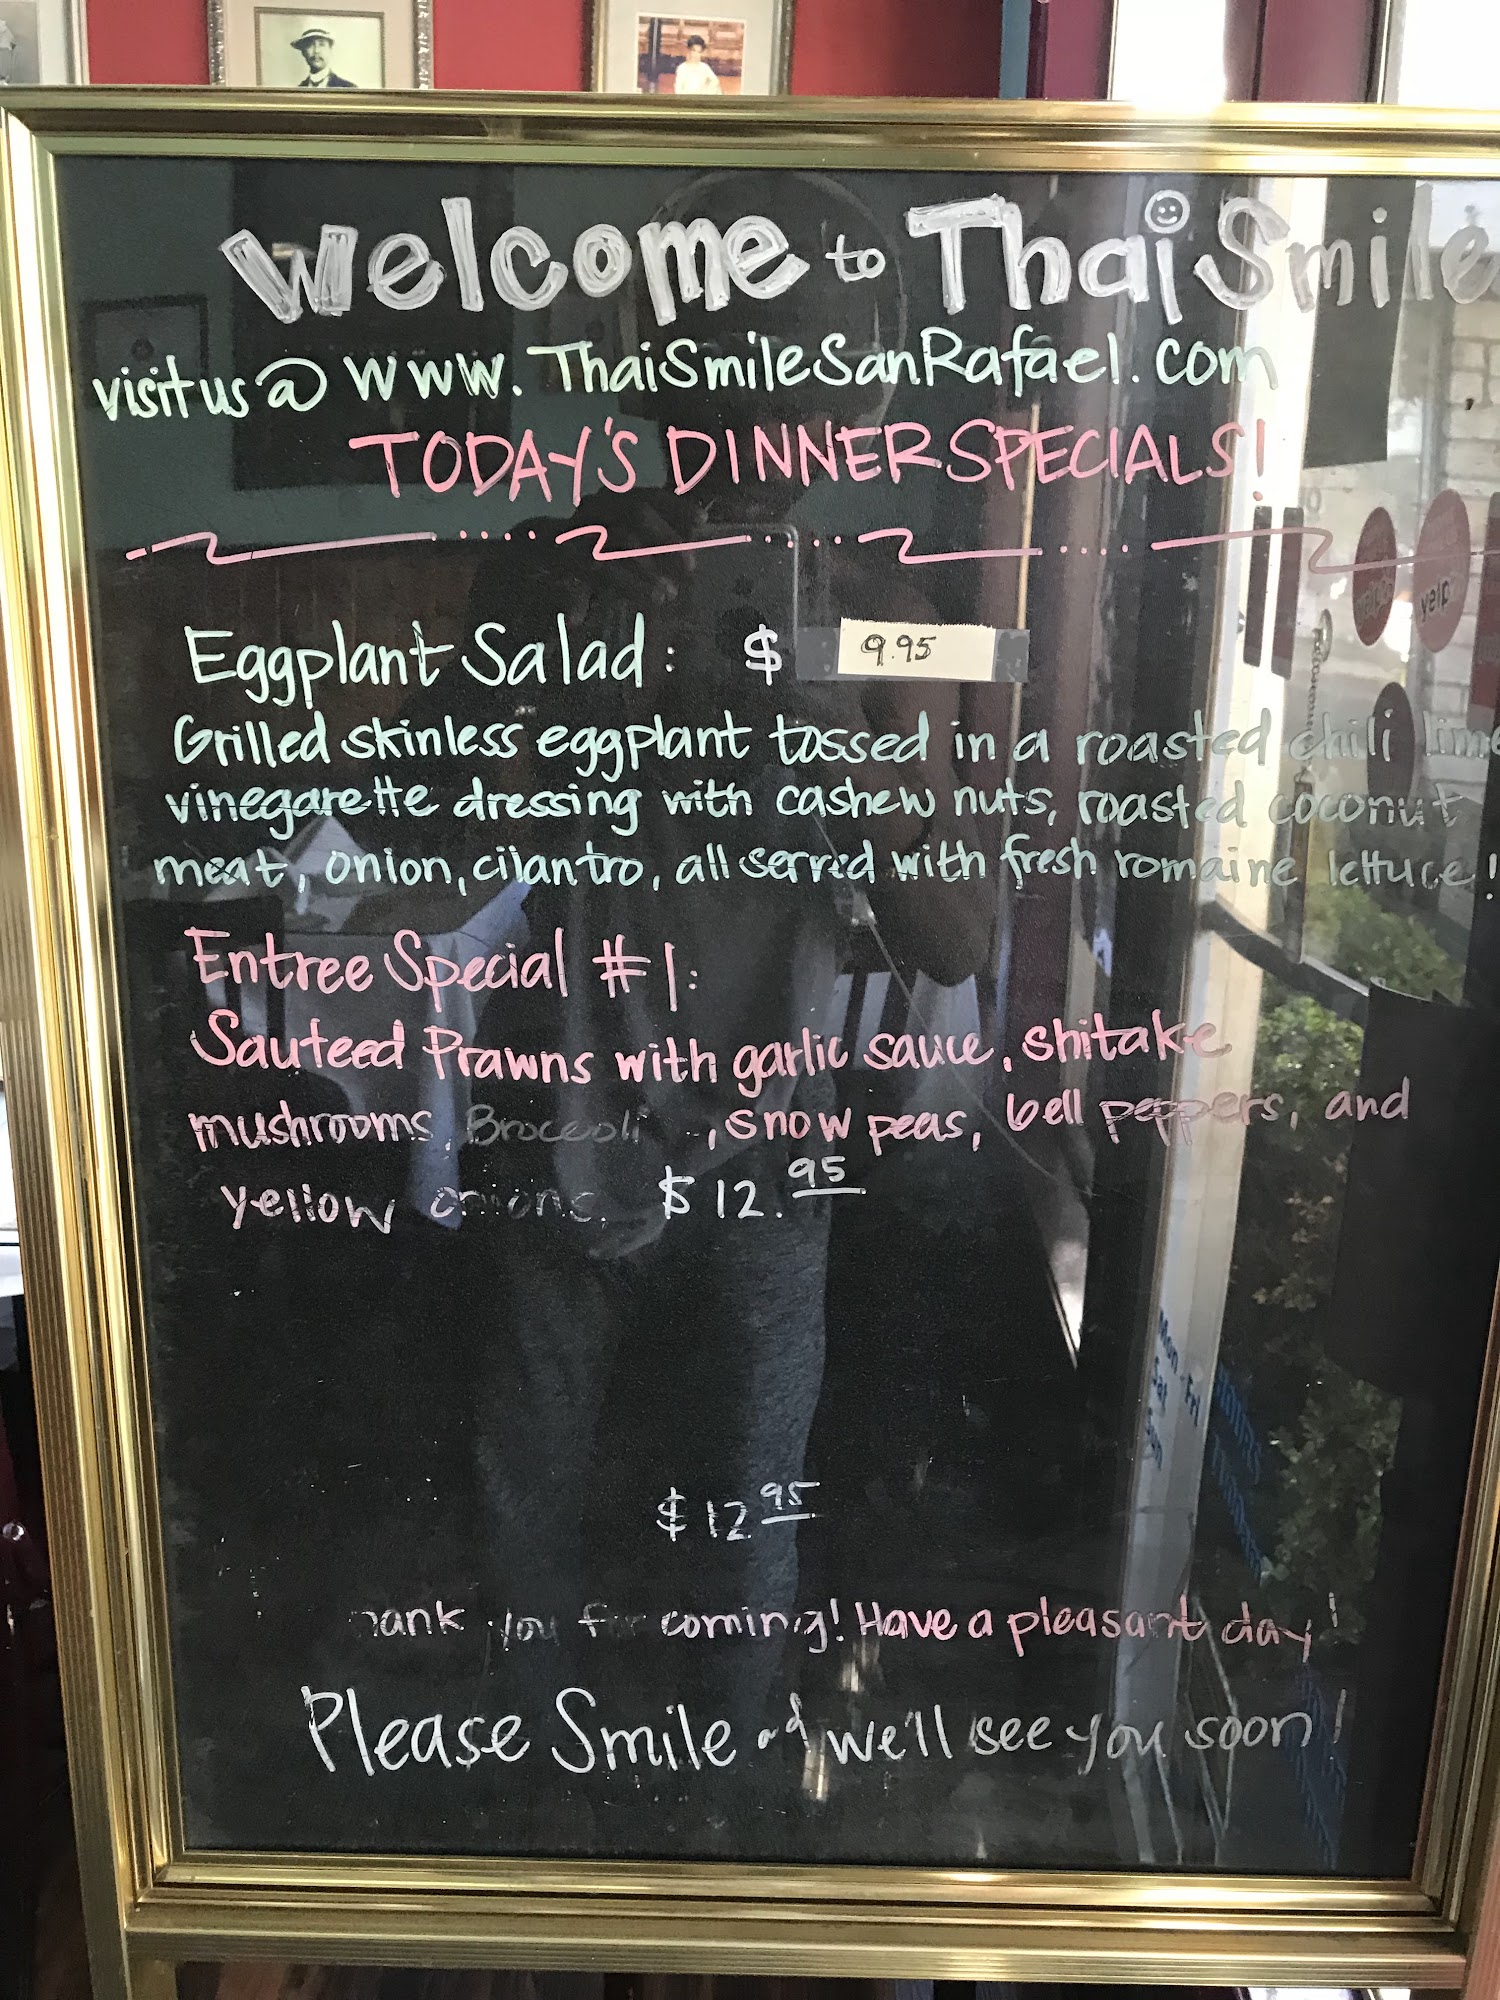 Welcome to Thai Smile
visit us @ www.ThaiSmileSanRafael.com
TODAY'S DINNER SPECIALS!
Eggplant Salad: $ 9.95
Grilled skinless eggplant tossed in a roasted chili lime
vinegarette dressing with cashew nuts, roasted coconut
meat, onion, cilantro, all served with fresh romaine lettuce!
Entree Special #1:
Sauteed Prawns with garlic sauce, shitake
mushrooms, Broccoli, snow peas, bell peppers, and
yellow onions. $12.95
$12 95
hank you for coming! Have a pleasant day!
Please Smile and we'll see you soon!
yelp
Mon - Fri
Sat
Sun